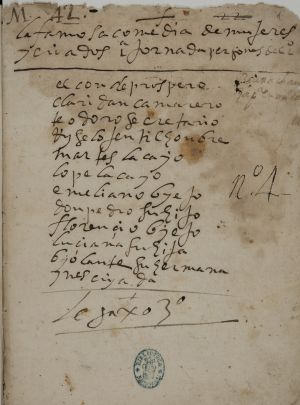 M. 42
la famosa comedia de mujeres
y criados 1ª jornada personas della
el conde prospero
claridan camarero
teodoro secretario
gentilhonbre
martes lacayo
lope lacayo
emiliano biejo
don pedro su hijo
florencio biejo
luciana su hija
biolante su hermana
ynes criada
nº 4